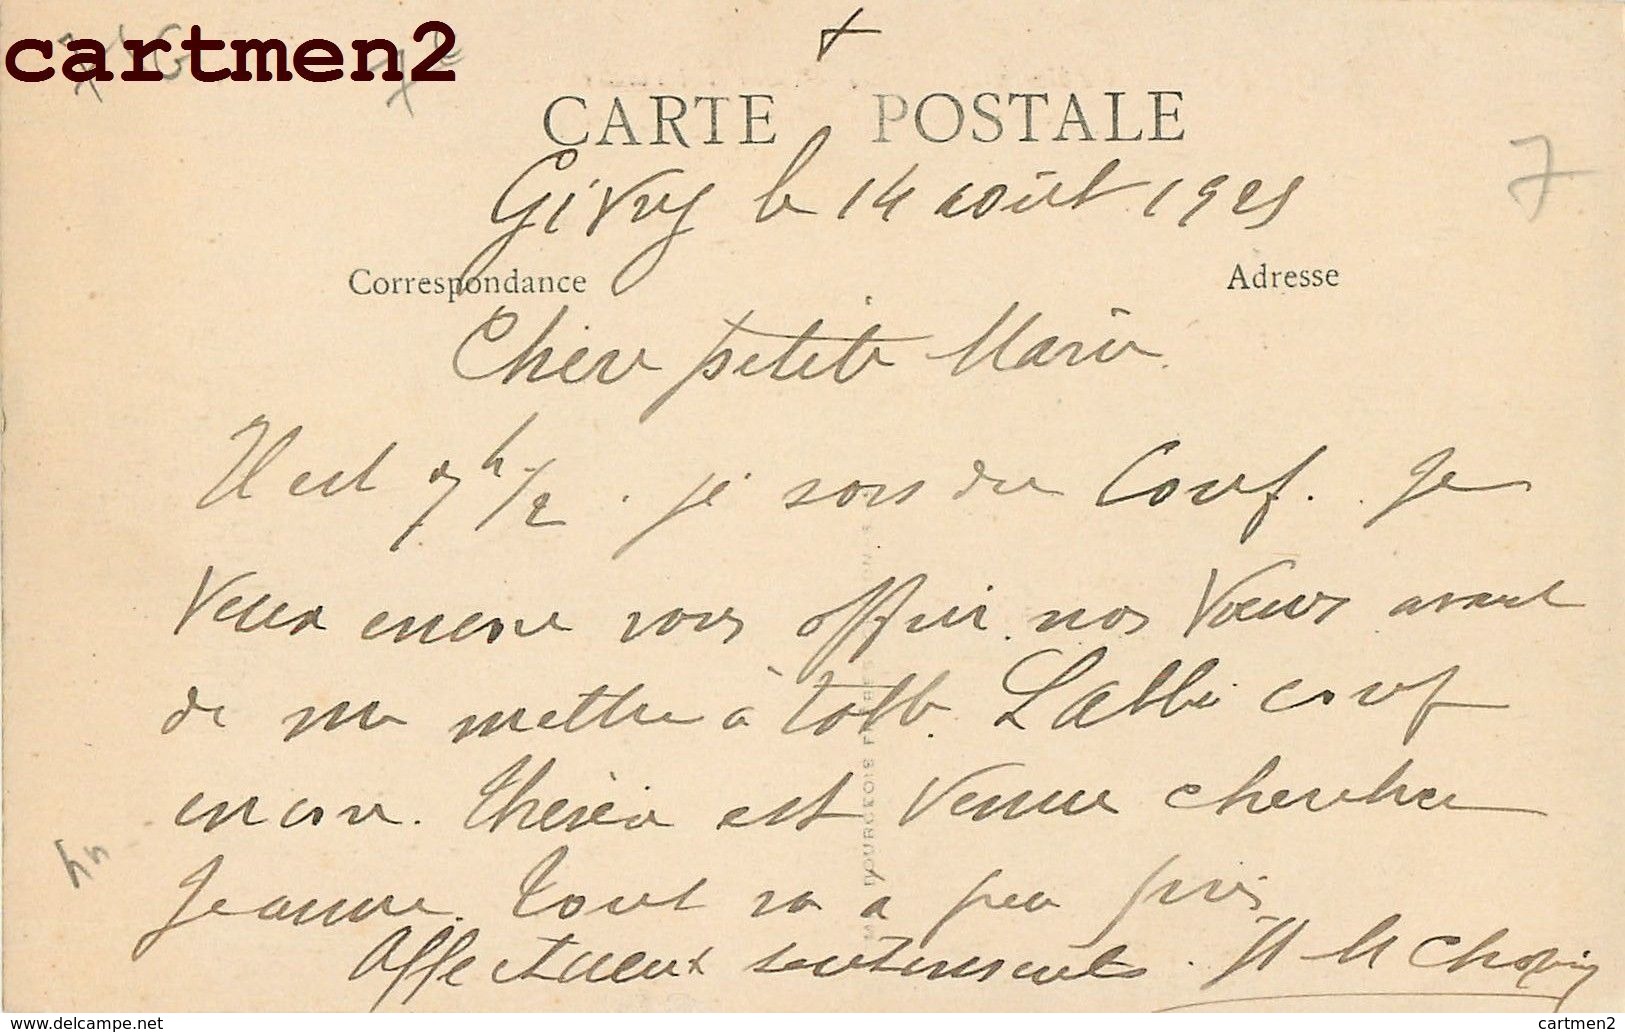 cartmen2
CARTE POSTALE
7
Givry le 14 août 1925
Correspondance
Adresse
Chère petite Marie
Il est 7h 1/2. je sors du Conf. Je
veux encore vous offrir nos vœux avant
de me mettre à table. L'abbé conf
encore. Thérèse est venue chercher
Jeanne. Tout va à peu près
Affectueux sentiments.
delcampe.net
cartmen2